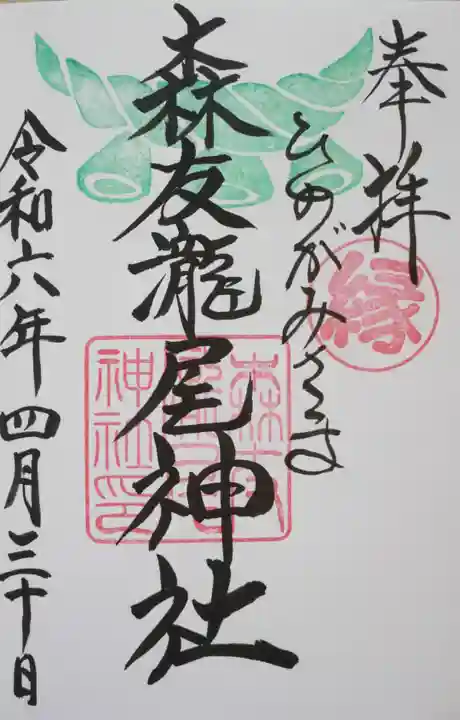 奉拝
縁
ひめがみさま
森友瀧尾神社
神社印
令和六年四月三十日